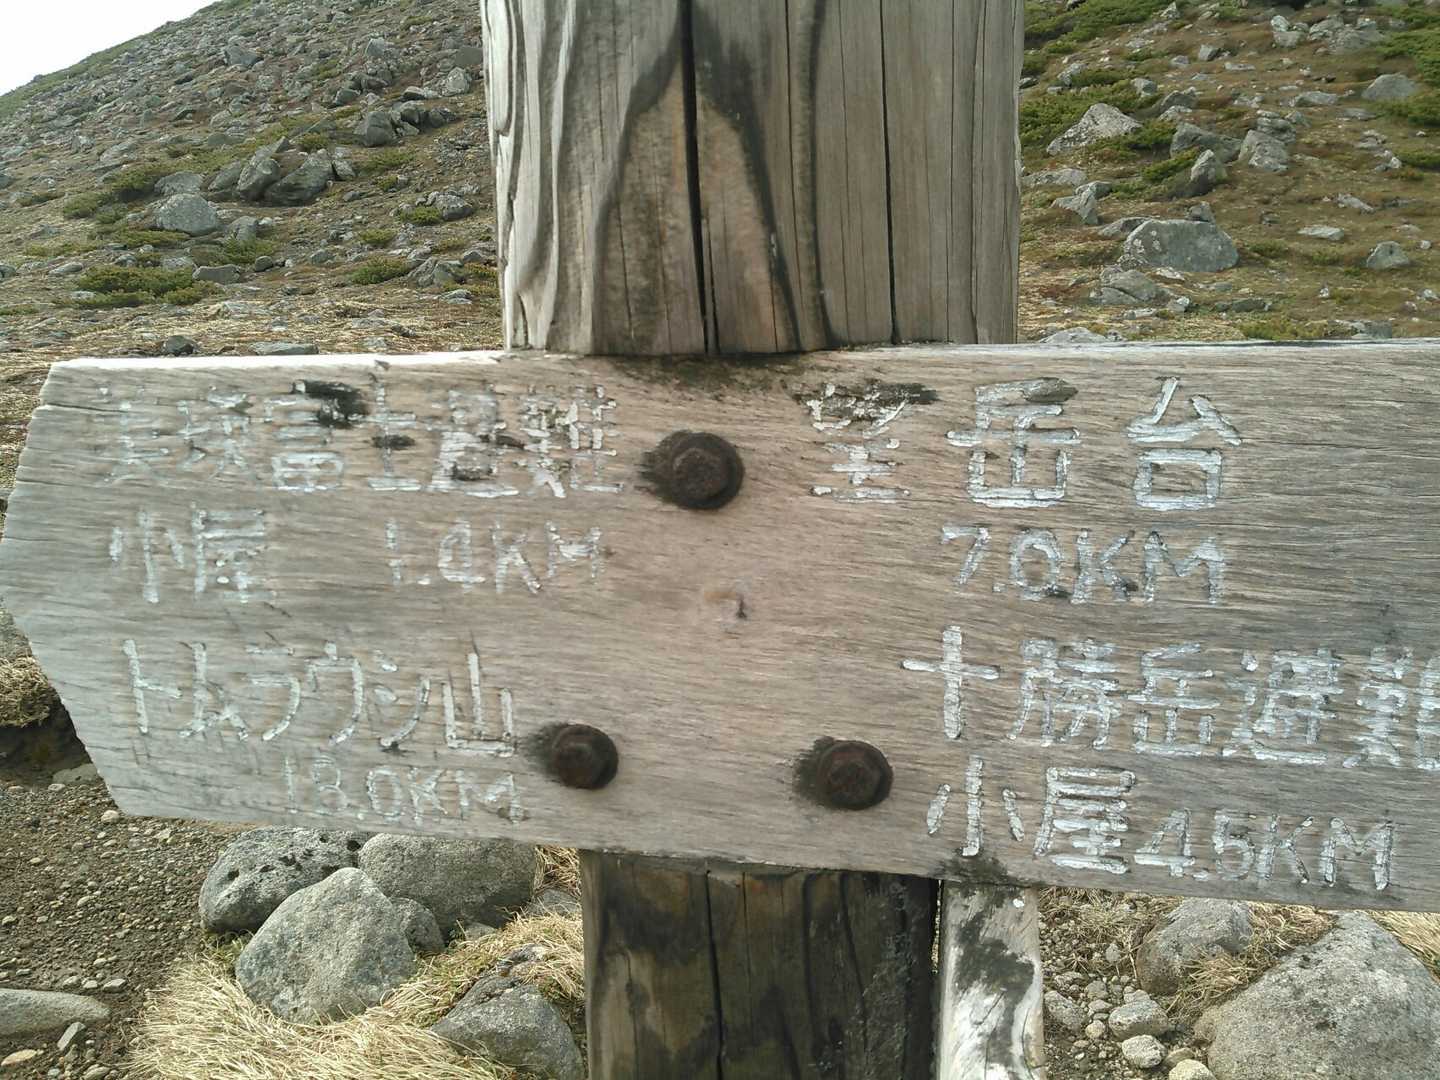 美瑛富士避難
小屋 1.0KM
トムラウシ山
18.0KM
望岳台
7.0KM
十勝岳避難
小屋 4.5KM